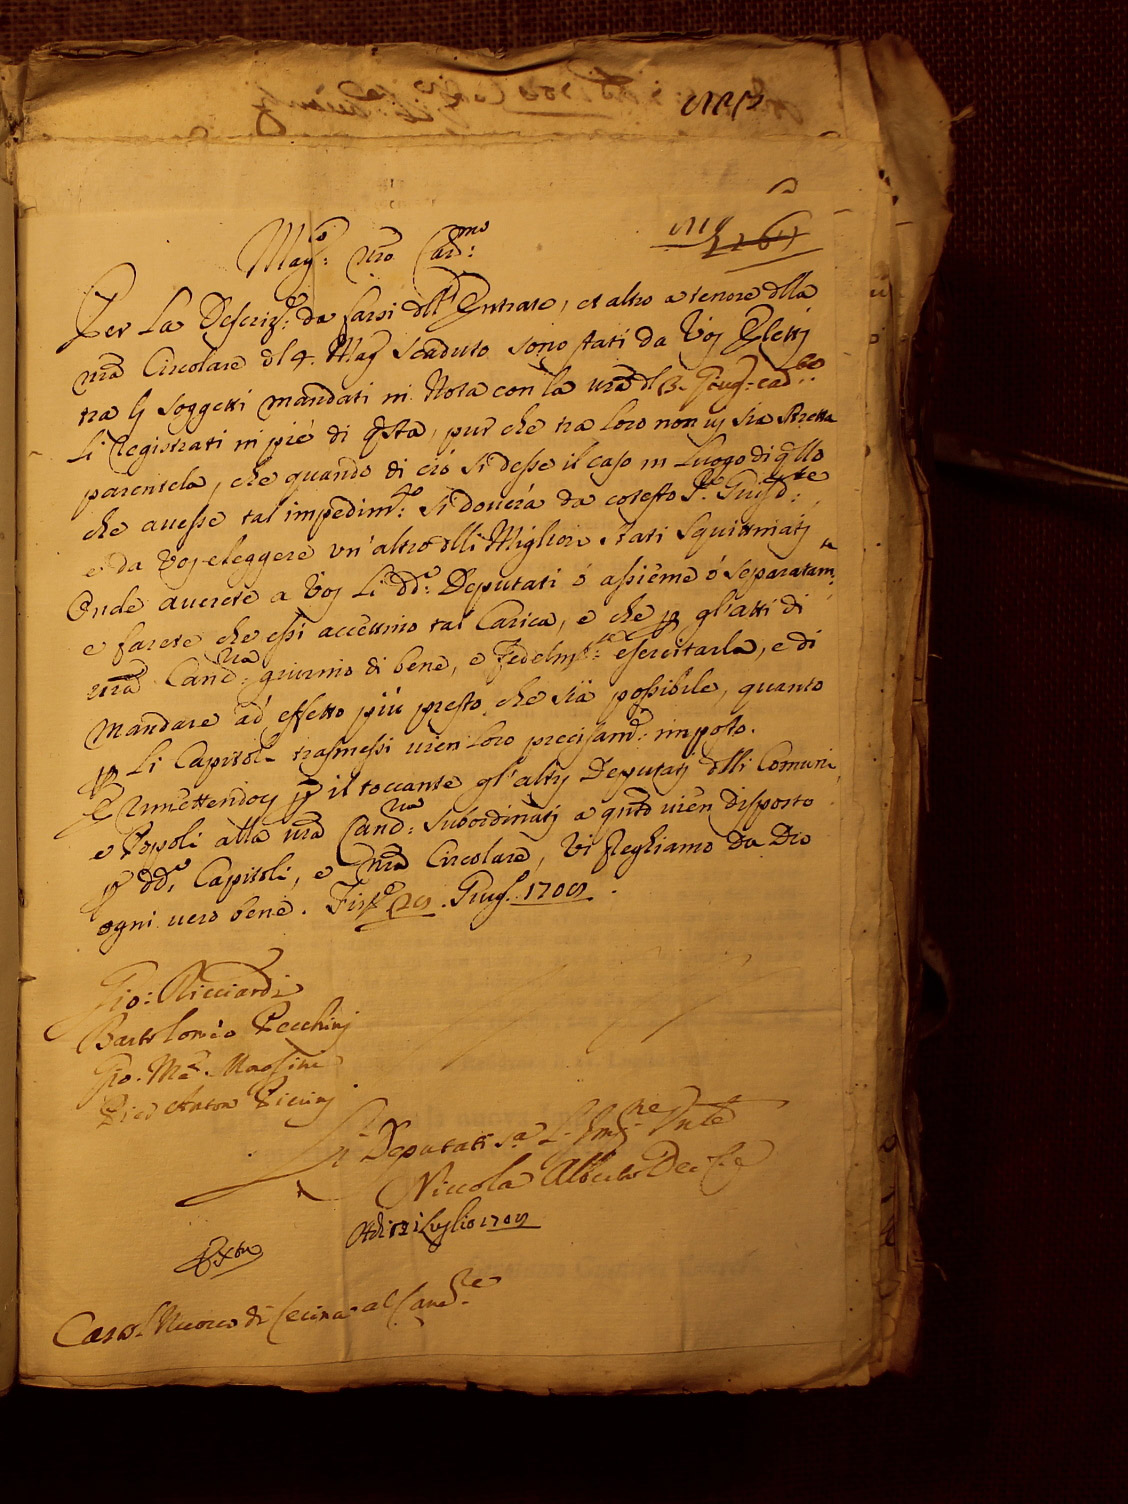 Mag.co nro Car.mo
Per La Descriz.e da farsi dll'Entrate, et altro a tenore dlla
nra Circolare dl 4. Mag.o scaduto sono stati da Voj Eletti
tra li soggetti mandati in Nota con la vra dl 13. Giug.o cad.te
Li Registrati in piè di qsta, pur che tra loro non vj sia stretta
parentela, che quando di ciò si desse il caso in Luogo di qllo
che avesse tal impedim.to si doverà da cotesto S.re Giusd.te
e da Voj eleggere un'altro dlli Migliori stati squittinatj
Onde avrete a Voj Li dd.i Deputati ó assieme ó separatam.te
e farete che essi accettino tal Carica, e che p gl'atti di
vra Canc.ria giurino di bene, e fedelm.te esercitarla, e di
mandare ad effetto più presto che sia possibile, quanto
p Li Capitoli trasmessi vien Loro precisam.te imposto.
E rimettendoci p il toccante gl'altrj Deputatj dlli Comuni,
e Popoli alla vra Canc.ria subordinatj a qnto vien disposto
p dd.i Capitoli, e nra Circolare, Vi preghiamo da Dio
ogni vero bene. Fir.e Giug.o 1709.
Gio: Ricciardi
Bartolomeo Pecchinj
Gio. M.a
Pier Anton
Li Deputati s.a
Niccola Alberto
Adi 12 Luglio 1709
di Cecina al Canc.re